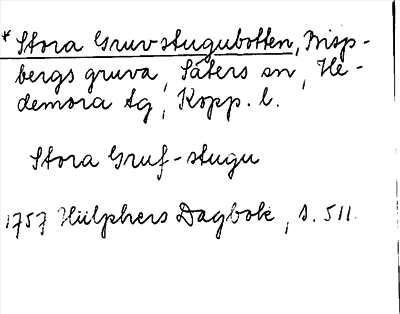 * Stora Gruvstugubotten, Bisp-
bergs gruva, Säters sn, He-
demora tg, Kopp. l.
Stora Gruf-stugu
1757 Hülphers Dagbok, s. 511.